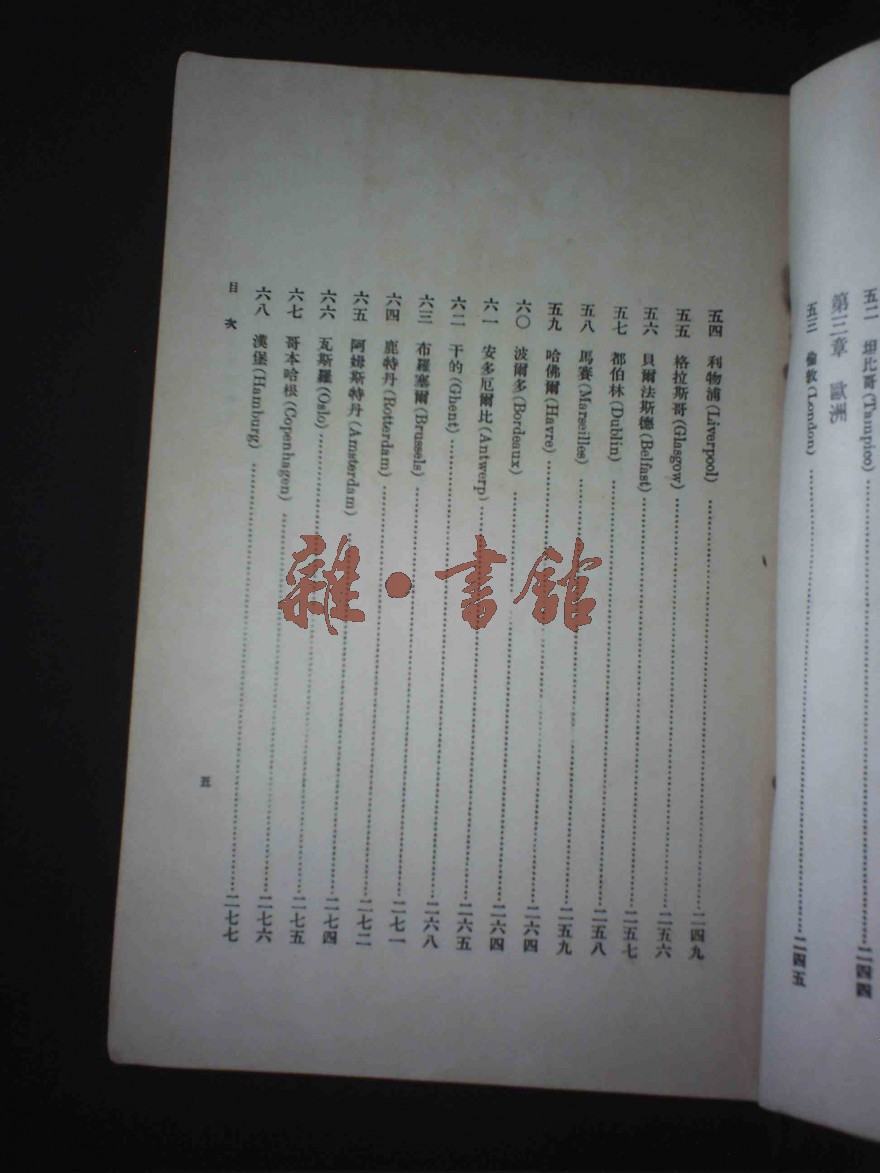 五二 坦比哥(Tampico)……二四四
第三章 歐洲
五三 倫敦(London)……二四五
五四 利物浦(Liverpool)……二四九
五五 格拉斯哥(Glasgow)……二五六
五六 貝爾法斯德(Belfast)……二五七
五七 都伯林(Dublin)……二五八
五八 馬賽(Marseilles)……二五九
五九 哈佛爾(Havre)……二六四
六〇 波爾多(Bordeaux)……二六四
六一 安多厄爾比(Antwerp)……二六五
六二 干的(Ghent)……二六八
六三 布羅塞爾(Brussels)……二七一
六四 鹿特丹(Rotterdam)……二七二
六五 阿姆斯特丹(Amsterdam)……二七四
六六 瓦斯羅(Oslo)……二七五
六七 哥本哈根(Copenhagen)……二七六
六八 漢堡(Hamburg)……二七七
目次
五
雜·書館